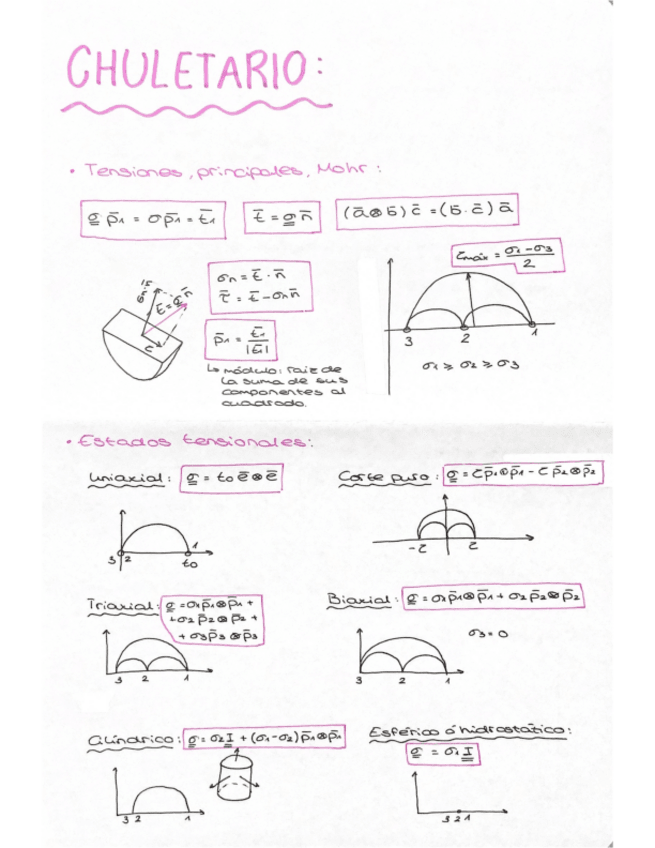 CHULETARIO:
• Tensiones, principales, Mohr:
σ p̄₁ = σp̄₁ = t̄₁
t̄ = σ n̄
(ā⊗b̄) c̄ = (b̄·c̄) ā
σn = t̄ · n̄
τ̄ = t̄ - σn n̄
τmáx = σ1 - σ3 / 2
t̄ = σ n̄
τ
p̄₁ = t̄₁ / |t̄₁|
3 2 1
σ1 ≥ σ2 ≥ σ3
↳ módulo: raíz de
la suma de sus
componentes al
cuadrado.
• Estados tensionales:
Uniaxial: σ = to ē⊗ē
Corte puro: σ = τp̄₁⊗p̄₁ - τ p̄₂⊗p̄₂
3 2 1
to
-τ τ
Triaxial: σ = σ1p̄₁⊗p̄₁ +
+σ2 p̄₂⊗p̄₂ +
+ σ3p̄₃⊗p̄₃
3 2 1
Biaxial: σ = σ1p̄₁⊗p̄₁ + σ2 p̄₂⊗p̄₂
σ3 = 0
3 2 1
Cilíndrico: σ = σ2 I + (σ1-σ2)p̄₁⊗p̄₁
3 2 1
Esférico ó hidrostático:
σ = σ1 I
3 2 1